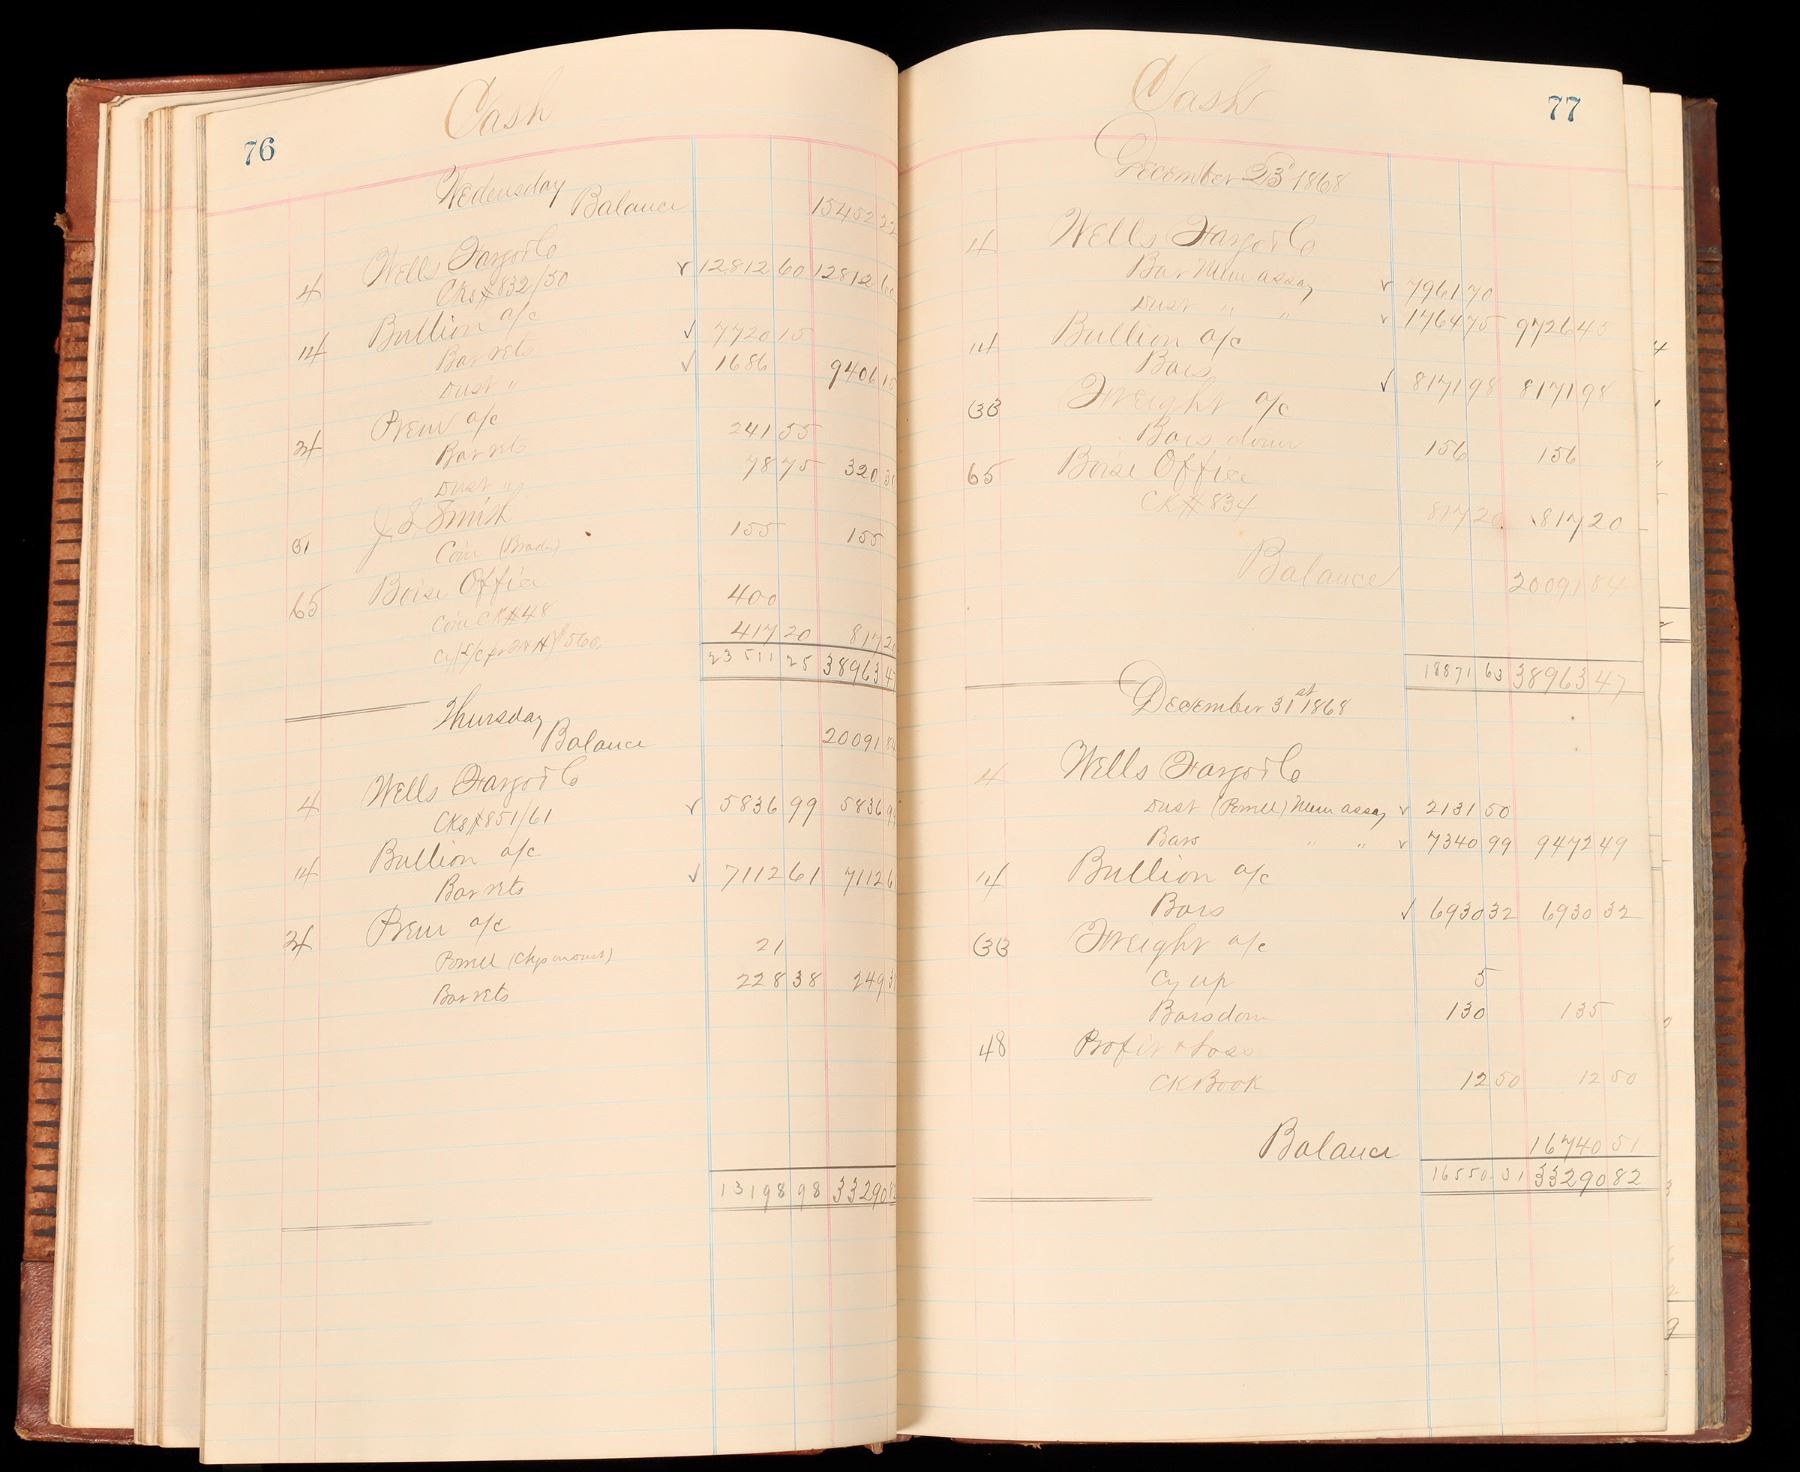 76
Cash
Wednesday
Balance 15452 22
4 Wells Fargo & Co
Cks # 832/50 12812 60 12812 60
14 Bullion a/c
Bar nets 7720 15
Dust " 1686 9406 15
34 Prem a/c
Bar nets 241 55
Dust " 78 75 320 30
61 J L Smith
Coin 155 155
65 Boise Office
Coin CK # 48 400
417 20 817 20
23511 25 38963 47
Thursday
Balance 20091 84
4 Wells Fargo & Co
Cks # 851/61 5836 99 5836 99
14 Bullion a/c
Bar nets 7112 61 7112 61
34 Prem a/c
21
Bar nets 228 38 249 38
13198 98 33290 82
77
Cash
December 23d 1868
4 Wells Fargo & Co
Bar Mem assay 7961 70
Dust " " 1764 75 9726 45
14 Bullion a/c
Bars 8171 98 8171 98
33 Freight a/c
Bars down 156 156
65 Boise Office
CK # 834 817 20 817 20
Balance 20091 84
18871 63 38963 47
December 31st 1868
4 Wells Fargo & Co
Dust Mem assay 2131 50
Bars " " 7340 99 9472 49
14 Bullion a/c
Bars 6930 32 6930 32
33 Freight a/c
Cy up 5
Bars down 130 135
48 Profit & Loss
CK Book 12 50 12 50
Balance 16740 51
16550 31 33290 82